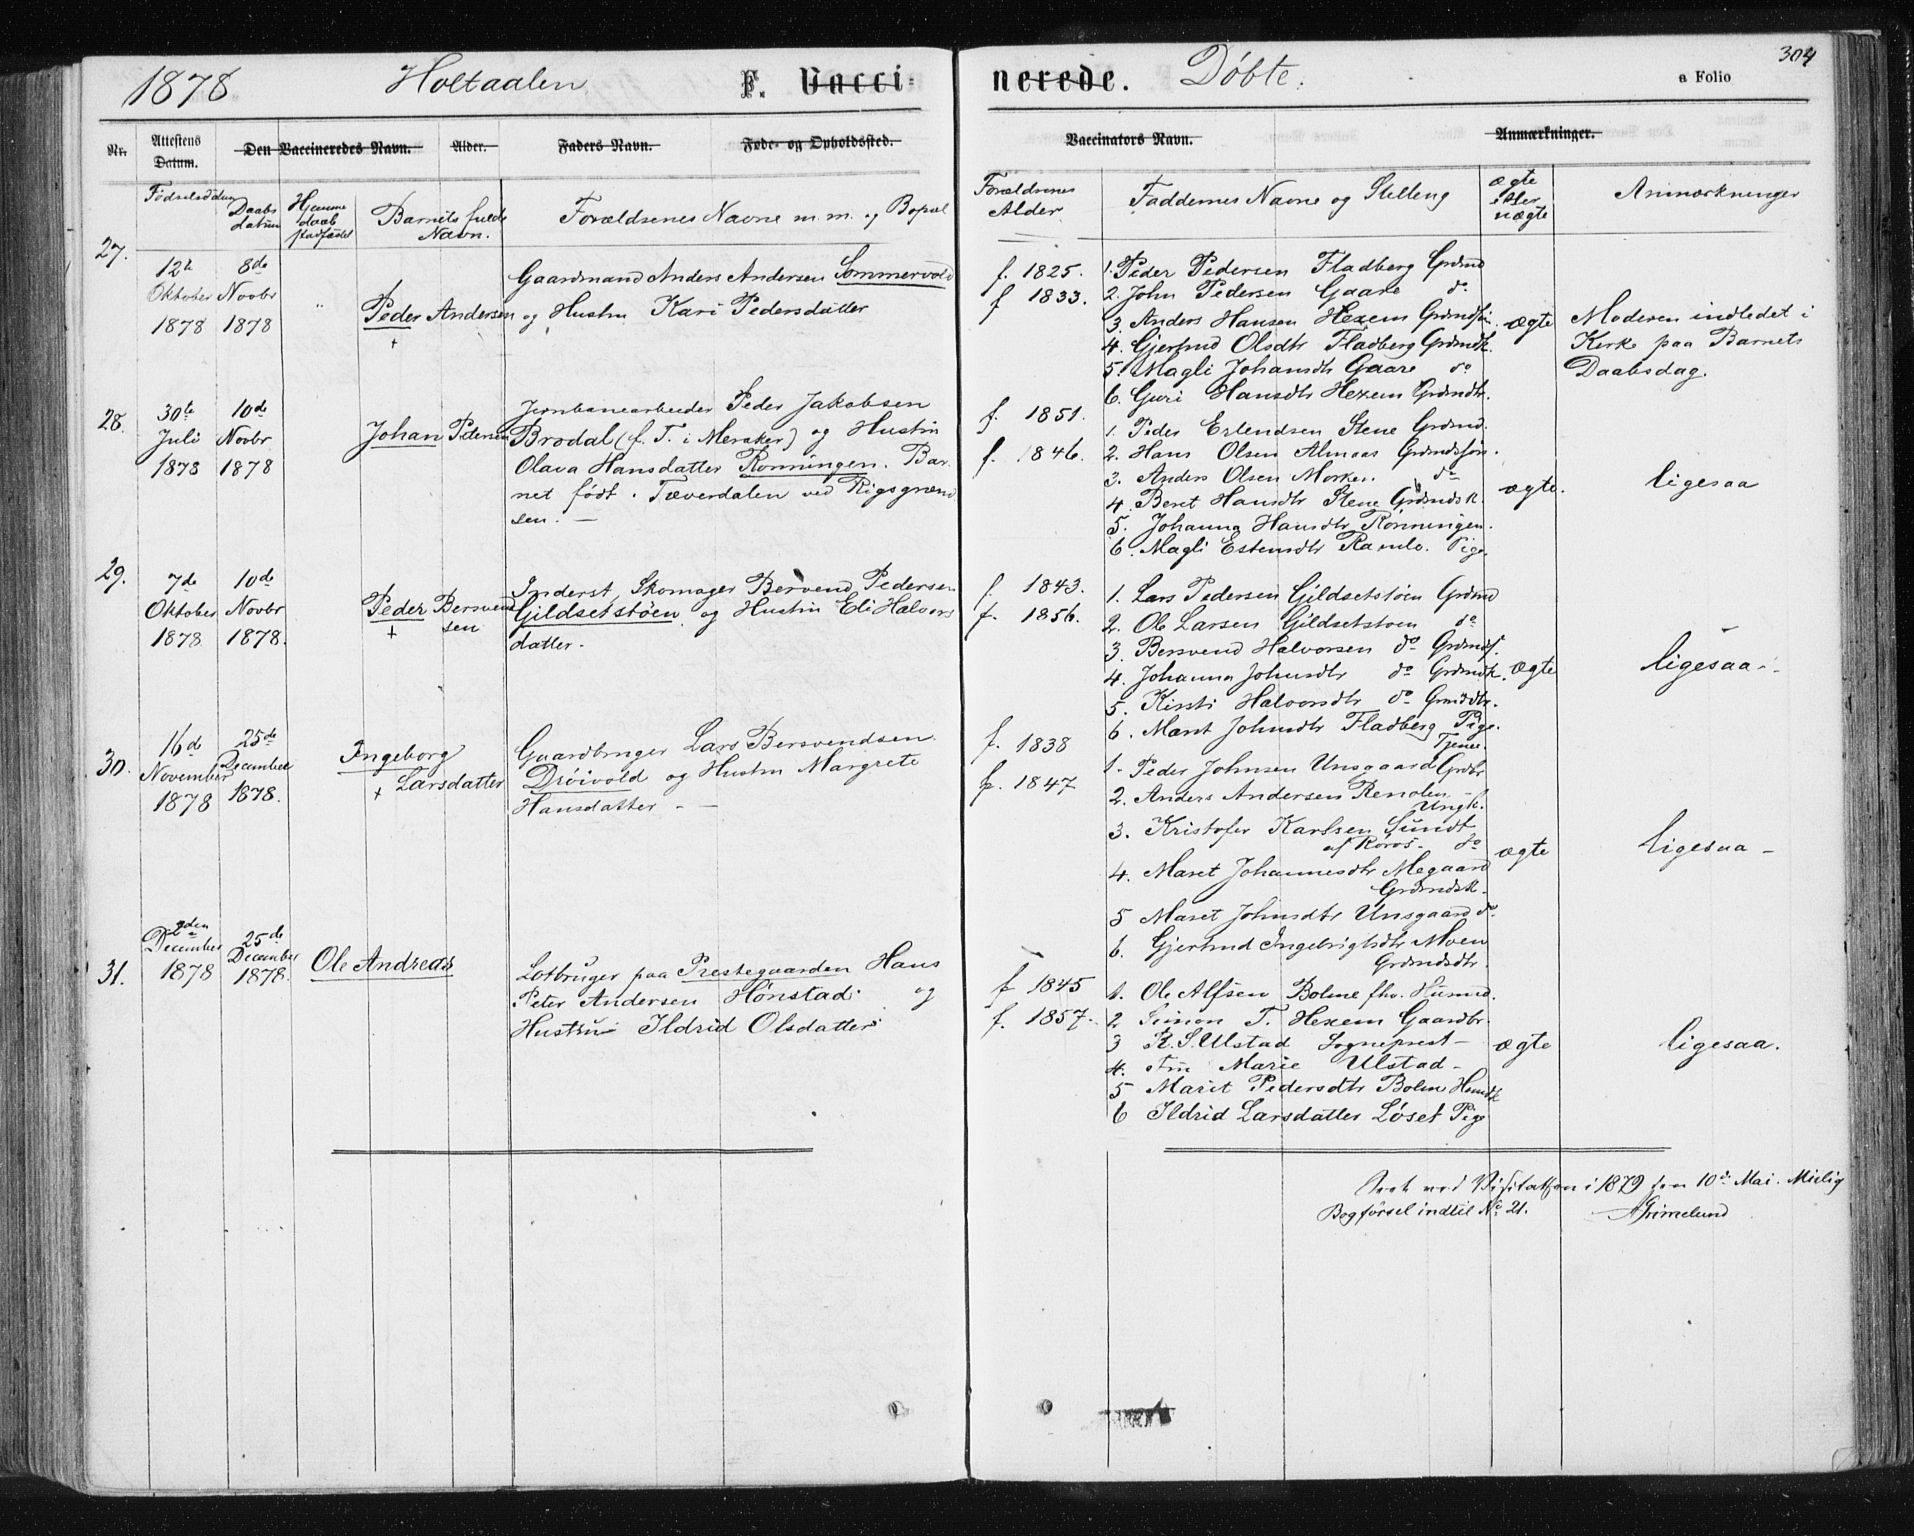 1878 Holtaalen F. Vacci-
Nr. Attestens Datum. Den Vaccineredes Navn. Alder. Faders Navn. Føde- og Opholdssted.
Fødselsdatum Daabs datum Hjemme daab stadfæstet Barnets fulde Navn. Forældrenes Navne m. m. og Bopæl
27.
12te 8de Gaardmand Anders Andersen Sommervold
Oktober Novbr " Peder Andersen og Hustru Kari Pedersdatter
1878 1878 +
28. 30te 10de Jernbanearbeider Peder Jakobsen
Juli Novbr Johan Petersen Brodal (f. T. i Meraker) og Hustru
1878 1878 Olava Hansdatter Rønningen. Bar-
net født i Tæverdalen ved Rigsgrænd
sen. —
29. 7de 10de Inderst, Skomager Bersvend Pedersen
Oktober Novbr Peder Bersvend Gildsetstøen og Hustru Eli Halvors
1878 1878. + sen datter.
30. 16de 25de Ingeborg Gaardbruger Lars Bersvendsen
November December + Larsdatter Drøivold og Hustru Margrete
1878 1878. Hansdatter —
31. 2den 25de
December December Ole Andreas Lotbruger paa Prestegaarden Hans
1878 1878. Peter Andersen Hønstad og
Hustru Ildrid Olsdatter
nerede. Døbte. a Folio 304
Vaccinators Navn. Anmærkninger.
Forældrenes Alder. Faddernes Navne og Stilling ægte eller uægte Anmærkninger
f. 1825. 1. Peder Pedersen Fladberg Grdmd
f 1833. 2. John Pedersen Gaare do
3. Anders Hansen Hexem Grdmdsøn. ægte Moderen indledet i
4. Gjertrud Olsdtr Fladberg Grdmdk. Kirke paa Barnets
5. Magli Johansdtr Gaare do Daabsdag.
6. Guri Hansdtr Hexem Grdmdtr.
f. 1851. 1. Peder Erlendsen Stene Grdmd.
f. 1846. 2. Hans Olsen Almaas Grdmdsøn.
3. Anders Olsen Morken. do
4. Beret Hansdtr Stene Grdmdsk. ægte. ligesaa
5. Johanna Hansdtr Rønningen.
6. Magli Estensdtr Ramlo. Pige
f. 1843. 1. Lars Pedersen Gildsetstøen Grdmd
f. 1856. 2. Ole Larsen Gildsetstøen do
3. Bersvend Halvorsen do Grdmds.
4. Johanna Johnsdtr do Grdmdk. ægte ligesaa -
5. Kirsti Halvorsdtr do Grmddtr.
6. Marit Johnsdtr Fladberg Pige Tjener.
f. 1838 1. Peder Johnsen Unsgaard Grdbr
f. 1847 2. Anders Andersen Renolen Ungk.
3. Kristofer Karlsen Sundt
af Røros - do ægte ligesaa -
4. Maret Johannesdtr Megaard
Grdmdsk.
5 Maret Johnsdtr Unsgaard do
6. Gjertrud Ingebrigtsdtr Moen
Grdmdsdtr.
f 1845 1. Ole Alfsen Bolme fhv. Husmd.
f. 1857. 2 Simon T. Hexem Gaardbr.
3 R. S. Ulstad Sogneprest - ægte ligesaa.
4. Fru Marie Ulstad -
5 Marit Pedersdtr Bolme Husmdk
6 Ildrid Larsdatter Løset Pige
Seet ved Visitatsen i 1879 den 10de Mai.
Bogførsel indtil No 21. AGrimelund